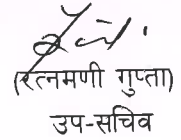 (रत्नमणी गुप्ता)
उप-सचिव